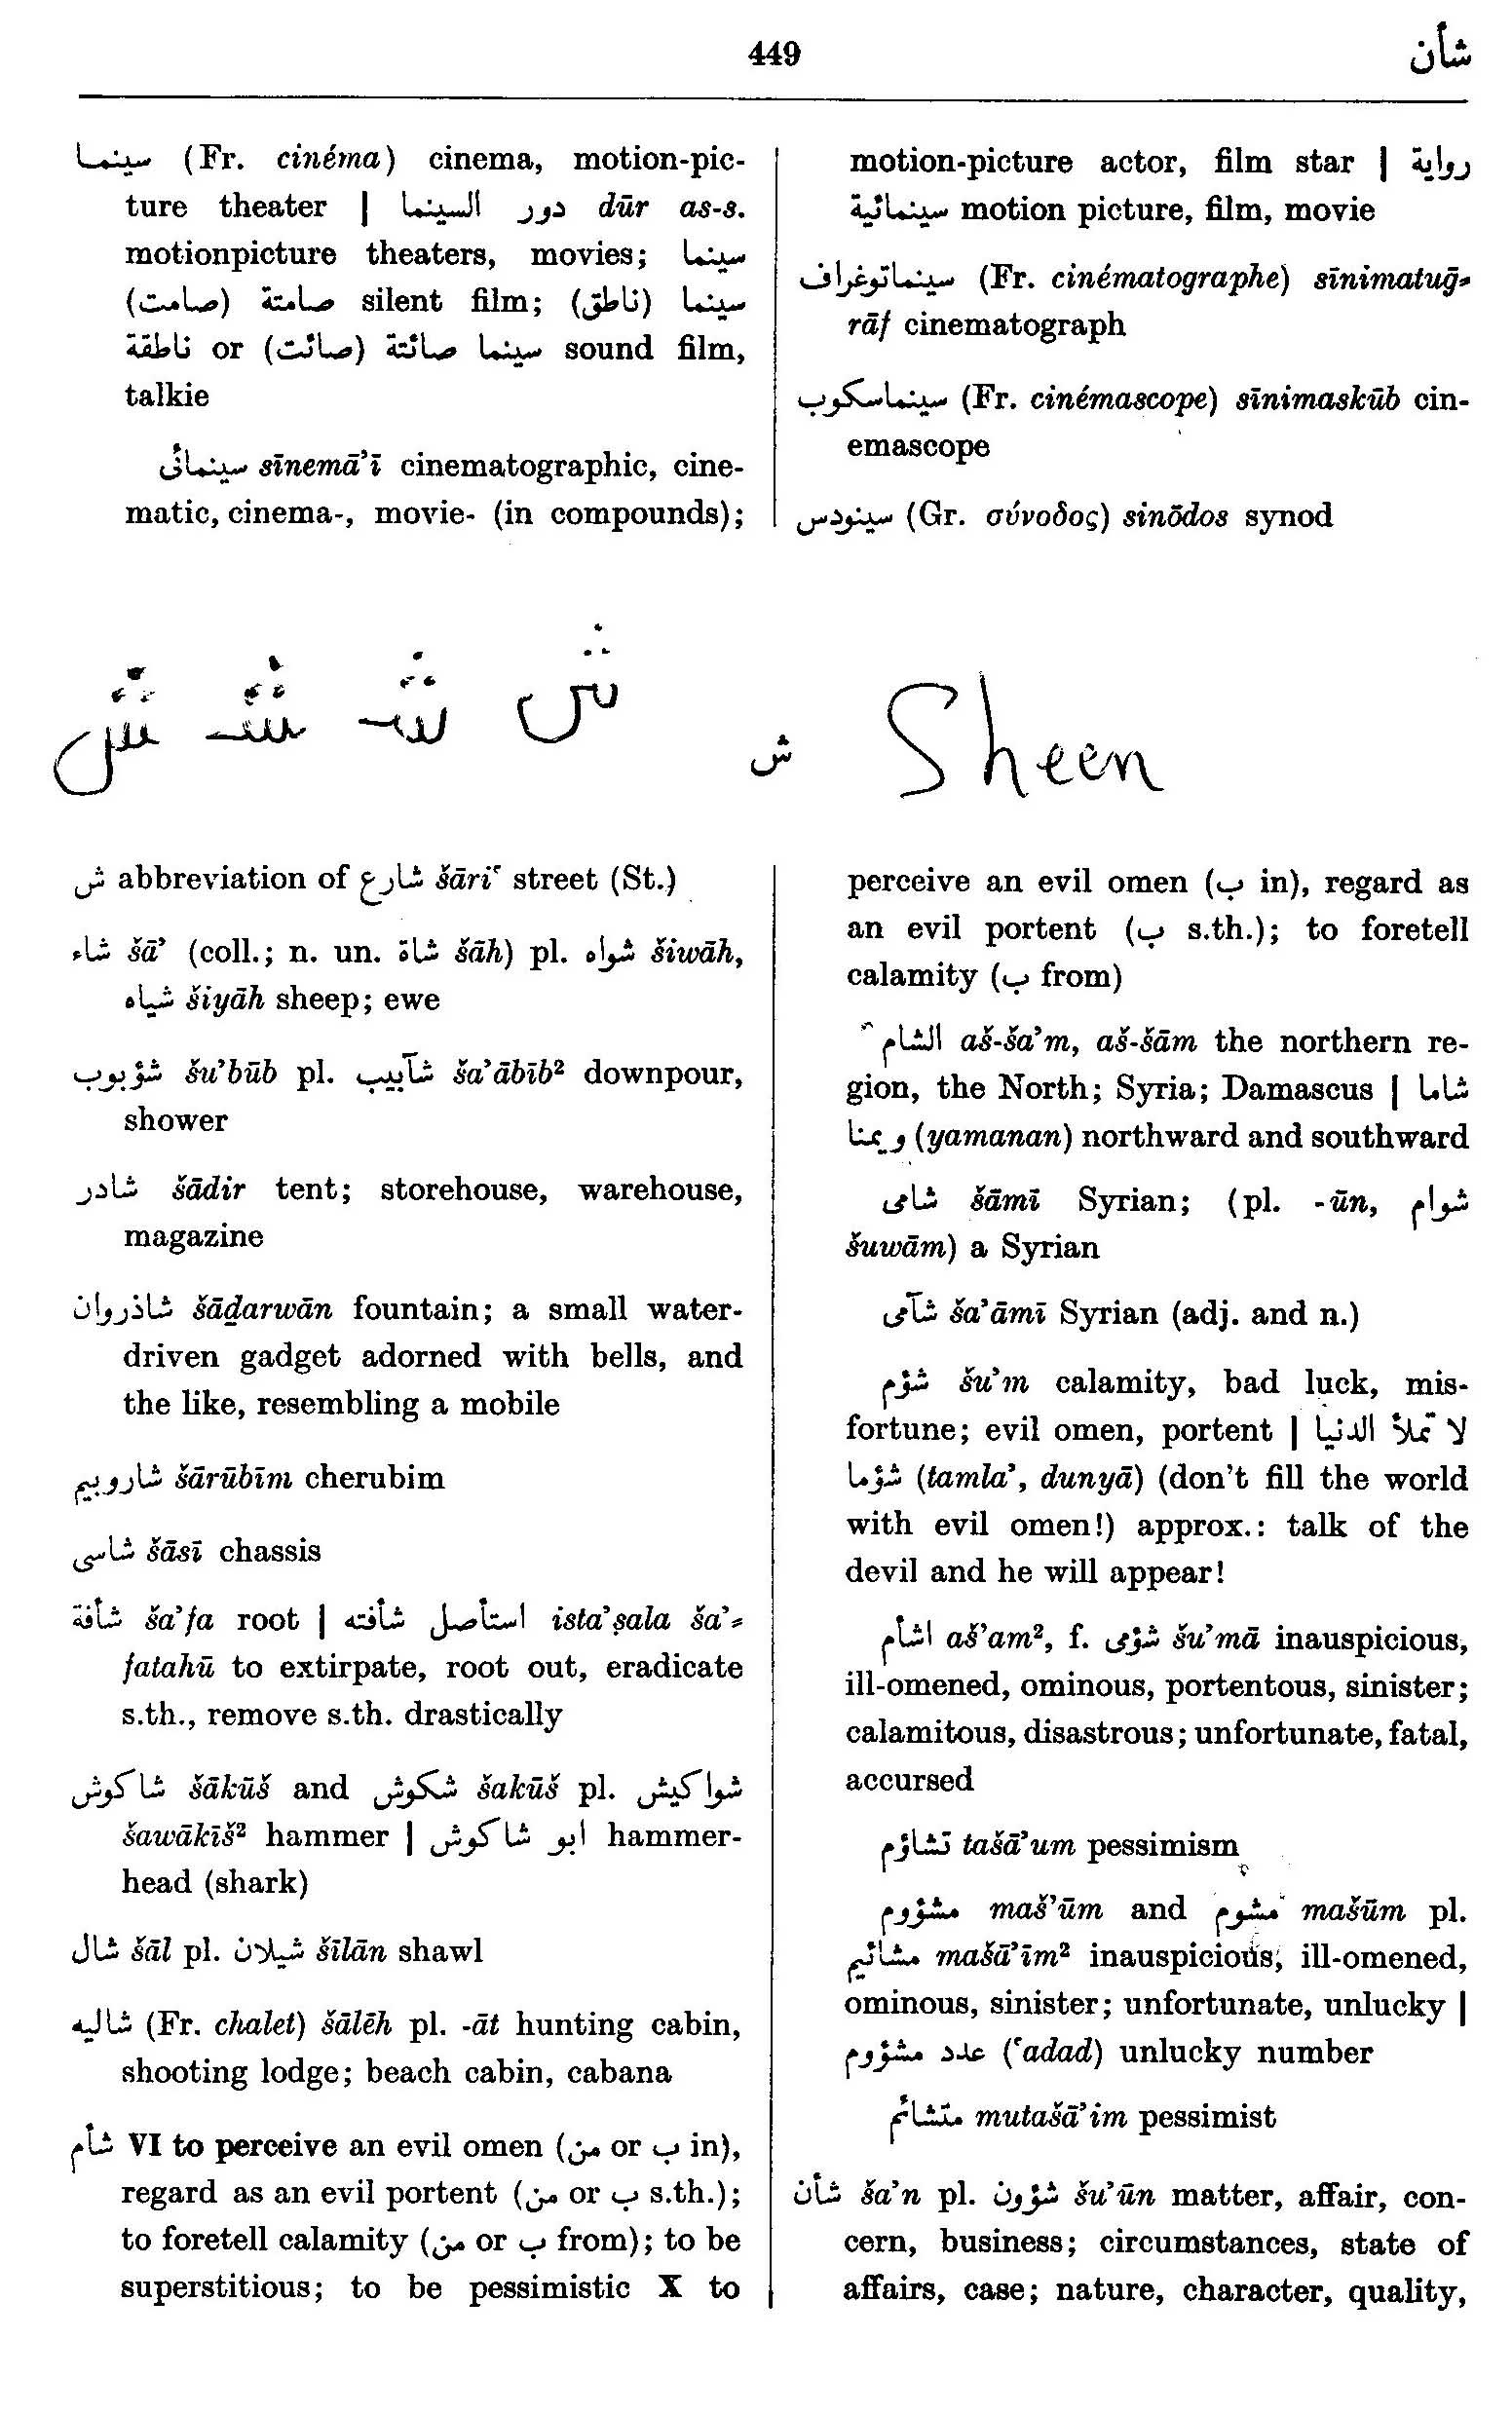 449
شأن
سينما (Fr. cinéma) cinema, motion-pic-
ture theater | دور السينما dūr as-s.
motionpicture theaters, movies; سينما
صامتة (صامت) silent film; سينما (ناطق)
ناطقة or سينما صائتة (صائت) sound film,
talkie
سينمائى sīnemā’ī cinematographic, cine-
matic, cinema-, movie- (in compounds);
motion-picture actor, film star | رواية
سينمائية motion picture, film, movie
سينماتوغراف (Fr. cinématographe) sīnimatuḡ-
rāf cinematograph
سينماسكوب (Fr. cinémascope) sīnimaskūb cin-
emascope
سينودس (Gr. σύνοδος) sinōdos synod
ش ش ش ش
ش
Sheen
ش abbreviation of شارع šāri‘ street (St.)
شاء šā’ (coll.; n. un. شاة šāh) pl. شواه šiwāh,
شياه šiyāh sheep; ewe
شؤبوب šu’būb pl. شآبيب ša’ābīb² downpour,
shower
شادر šādir tent; storehouse, warehouse,
magazine
شاذروان šāḏarwān fountain; a small water-
driven gadget adorned with bells, and
the like, resembling a mobile
شاروبيم šārūbīm cherubim
شاسى šāsī chassis
شأفة ša’fa root | استأصل شأفته ista’ṣala ša’-
fatahū to extirpate, root out, eradicate
s.th., remove s.th. drastically
شاكوش šākūš and شكوش šakūš pl. شواكيش
šawākīš² hammer | ابو شاكوش hammer-
head (shark)
شال šāl pl. شيلان šīlān shawl
شاليه (Fr. chalet) šālēh pl. -āt hunting cabin,
shooting lodge; beach cabin, cabana
شأم VI to perceive an evil omen (من or ب in),
regard as an evil portent (من or ب s.th.);
to foretell calamity (من or ب from); to be
superstitious; to be pessimistic X to
perceive an evil omen (ب in), regard as
an evil portent (ب s.th.); to foretell
calamity (ب from)
الشام aš-ša’m, aš-šām the northern re-
gion, the North; Syria; Damascus | شاما
ويمنا (yamanan) northward and southward
شامى šāmī Syrian; (pl. -ūn, شوام
šuwām) a Syrian
شآمى ša’āmī Syrian (adj. and n.)
شؤم šu’m calamity, bad luck, mis-
fortune; evil omen, portent | لا تملأ الدنيا
شؤما (tamla’, dunyā) (don't fill the world
with evil omen!) approx.: talk of the
devil and he will appear!
اشأم aš’am², f. شؤمى šu’mā inauspicious,
ill-omened, ominous, portentous, sinister;
calamitous, disastrous; unfortunate, fatal,
accursed
تشاؤم tašā’um pessimism
مشؤوم maš’ūm and مشوم mašūm pl.
مشائيم mašā’īm² inauspicious, ill-omened,
ominous, sinister; unfortunate, unlucky |
عدد مشؤوم (‘adad) unlucky number
متشائم mutašā’im pessimist
شأن ša’n pl. شؤون šu’ūn matter, affair, con-
cern, business; circumstances, state of
affairs, case; nature, character, quality,